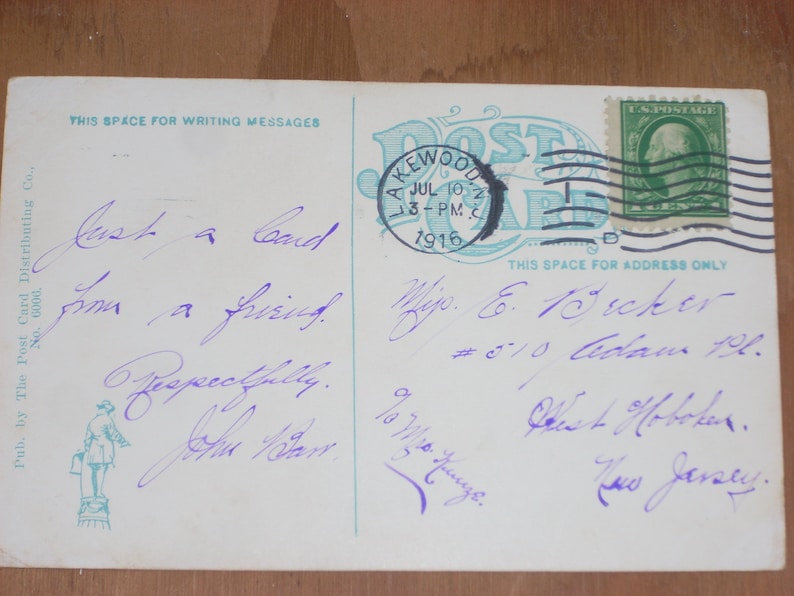 THIS SPACE FOR WRITING MESSAGES
Just a Card
from a friend.
Respectfully.
John Barr.
Pub. by The Post Card Distributing Co.,
No. 6006.
POST CARD
LAKEWOOD, N.J.
JUL 10
3-PM
1916
U.S. POSTAGE
THIS SPACE FOR ADDRESS ONLY
Miss. E. Becker
#510 Adam Pl.
West Hoboken.
New Jersey.
c/o Mrs. Kunze.